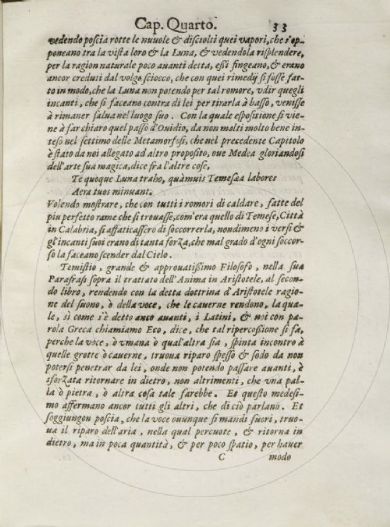 Cap. Quarto. 33
vedendo poscia rotte le nuuole & disciolti quei vapori, che s'op
poneano tra la vista loro & la Luna, & vedendola risplendere,
per la ragion naturale poco auanti detta, essi fingeano, & erano
ancor creduti dal volgo sciocco, che con quei rimedij si fosse fat-
to in modo, che la Luna non potendo per tal romore, vdir quegli
incanti, che si faceano contra di lei per tirarla à basso, venisse
à rimaner salua nel luogo suo. Con la quale espositione si vie-
ne à far chiaro quel passo d'Ouidio, da non molti molto bene in-
teso nel settimo delle Metamorfosi, che nel precedente Capitolo
è stato da noi allegato ad altro proposito, oue Medea gloriandosi
dell'arte sua magica, dice fra l'altre cose,
Te quoque Luna traho, quàmuis Temesæa labores
Aera tuos minuant.
Volendo mostrare, che con tutti i romori di caldare, fatte del
piu perfetto rame che si trouasse, com'era quello di Temese, Città
in Calabria, si affaticassero di soccorrerla, nondimeno i versi &
gl'incanti suoi erano di tanta forza, che mal grado d'ogni soccor-
so la faceano scender dal Cielo.
Temistio, grande & approuatissimo Filosofo, nella sua
Parafrasi sopra il trattato dell'Anima in Aristotele, al secon-
do libro, rendendo con la detta dottrina d'Aristotele ragio-
ne del suono, ò della voce, che le cauerne rendono, la qua-
le, sì come s'è detto anco auanti, i Latini, & noi con pa-
rola Greca chiamiamo Eco, dice, che tal ripercossione si fa,
perche la voce, ò vmana ò qual'altra sia, spinta incontro à
quelle grotte ò cauerne, truoua riparo spesso & sodo da non
potersi penetrar da lei, onde non potendo passare auanti, è
sforzata ritornare in dietro, non altrimenti, che vna pal-
la ò pietra, ò altra cosa tale farebbe. Et questo medesi-
mo affermano ancor tutti gli altri, che di ciò parlano. Et
soggiungon poscia, che la voce ouunque si mandi fuori, truo-
ua il riparo dell'aria, nella qual percuote, & ritorna in
dietro, ma in poca quantità, & per poco spatio, per hauer
C modo